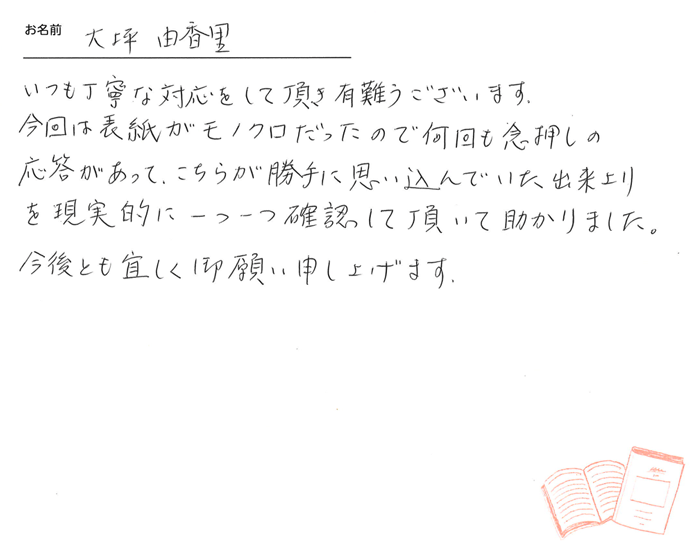 お名前 大坪 由香里
いつも丁寧な対応をして頂き有難うございます.
今回は表紙がモノクロだったので何回も念押しの
応答があって、こちらが勝手に思い込んでいた出来上り
を現実的に一つ一つ確認して頂いて助かりました。
今後とも宜しく御願い申し上げます.